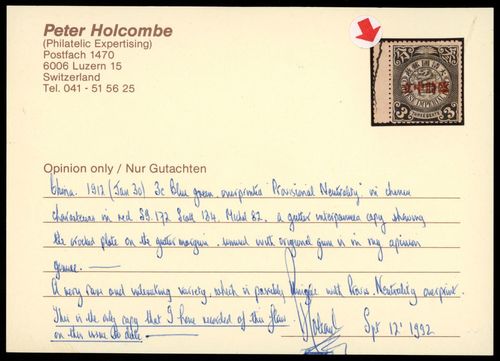 Peter Holcombe
(Philatelic Expertising)
Postfach 1470
6006 Luzern 15
Switzerland
Tel. 041 - 51 56 25
3 3
Opinion only / Nur Gutachten
China. 1912 (Jan 30) 3c Blue green overprinted "Provisional Neutrality" in chinese
characters in red S9.172 Scott 134. Michel 82. a gutter interpanneau copy showing
the cracked plate on the gutter margin. unused with original gum is in my opinion
genuine.
A very rare and interesting variety, which is possibly unique with Provis. Neutrality overprint.
This is the only copy that I have recorded of this flaw
on this issue to date.
P Holcombe Sept 12' 1992